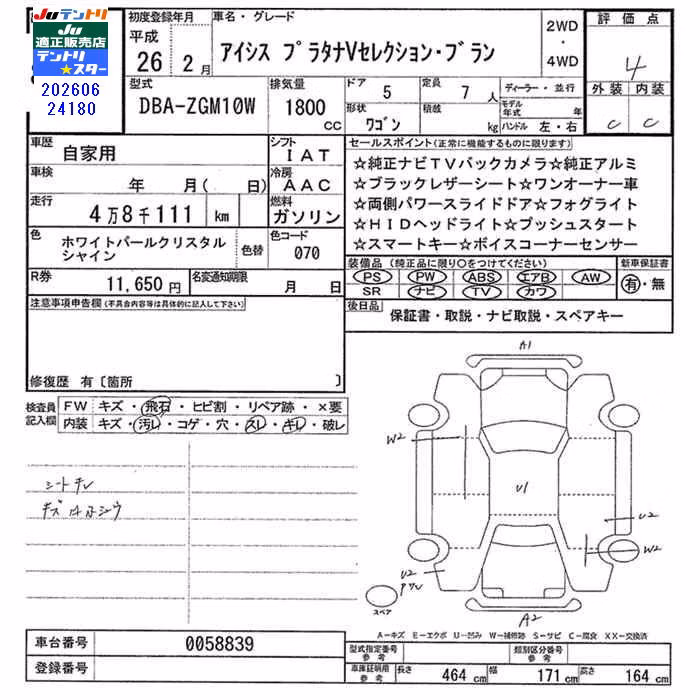 Juテントリ
Ju
適正販売店
テントリ
★スター
202606
24180
初度登録年月
平成
26 2月
車名・グレード
アイシス プラタナVセレクション・ブラン
2WD
・
4WD
評価点
4
外装 内装
C C
型式
DBA-ZGM10W
排気量
1800
cc
ドア
5
定員
7人
形状
ワゴン
積載
kg
ディーラー・並行
モデル年式 年
ハンドル 左・右
車歴
自家用
シフト
IAT
車検
年 月( 日)
冷房
AAC
走行
4万8千111 km
燃料
ガソリン
色
ホワイトパールクリスタル
シャイン
色替
色コード
070
R券
11,650円
名変通知期限
月 日
セールスポイント(正常に機能するものに限ります)
☆純正ナビTVバックカメラ☆純正アルミ
☆ブラックレザーシート☆ワンオーナー車
☆両側パワースライドドア☆フォグライト
☆HIDヘッドライト☆プッシュスタート
☆スマートキー☆ボイスコーナーセンサー
装備品(純正品に限り○をつけてください)
PS PW ABS エアB AW
SR ナビ TV カワ
新車保証書
有・無
後日品
保証書・取説・ナビ取説・スペアキー
注意事項申告欄(不具合内容等は具体的に記入して下さい)
修復歴 有〔箇所 〕
検査員
記入欄
FW キズ・飛石・ヒビ割・リペア跡・×要
内装 キズ・汚レ・コゲ・穴・スレ・キレ・破レ
A1
W2
U1
U2
W2
U2
A2
スペア
A-キズ E-エクボ U-凹み W-補修跡 S-サビ C-腐食 XX-交換済
車台番号
0058839
登録番号
型式指定番号
参考
類別区分番号
参考
車庫証明用
参考
長さ 464 cm 幅 171 cm 高さ 164 cm